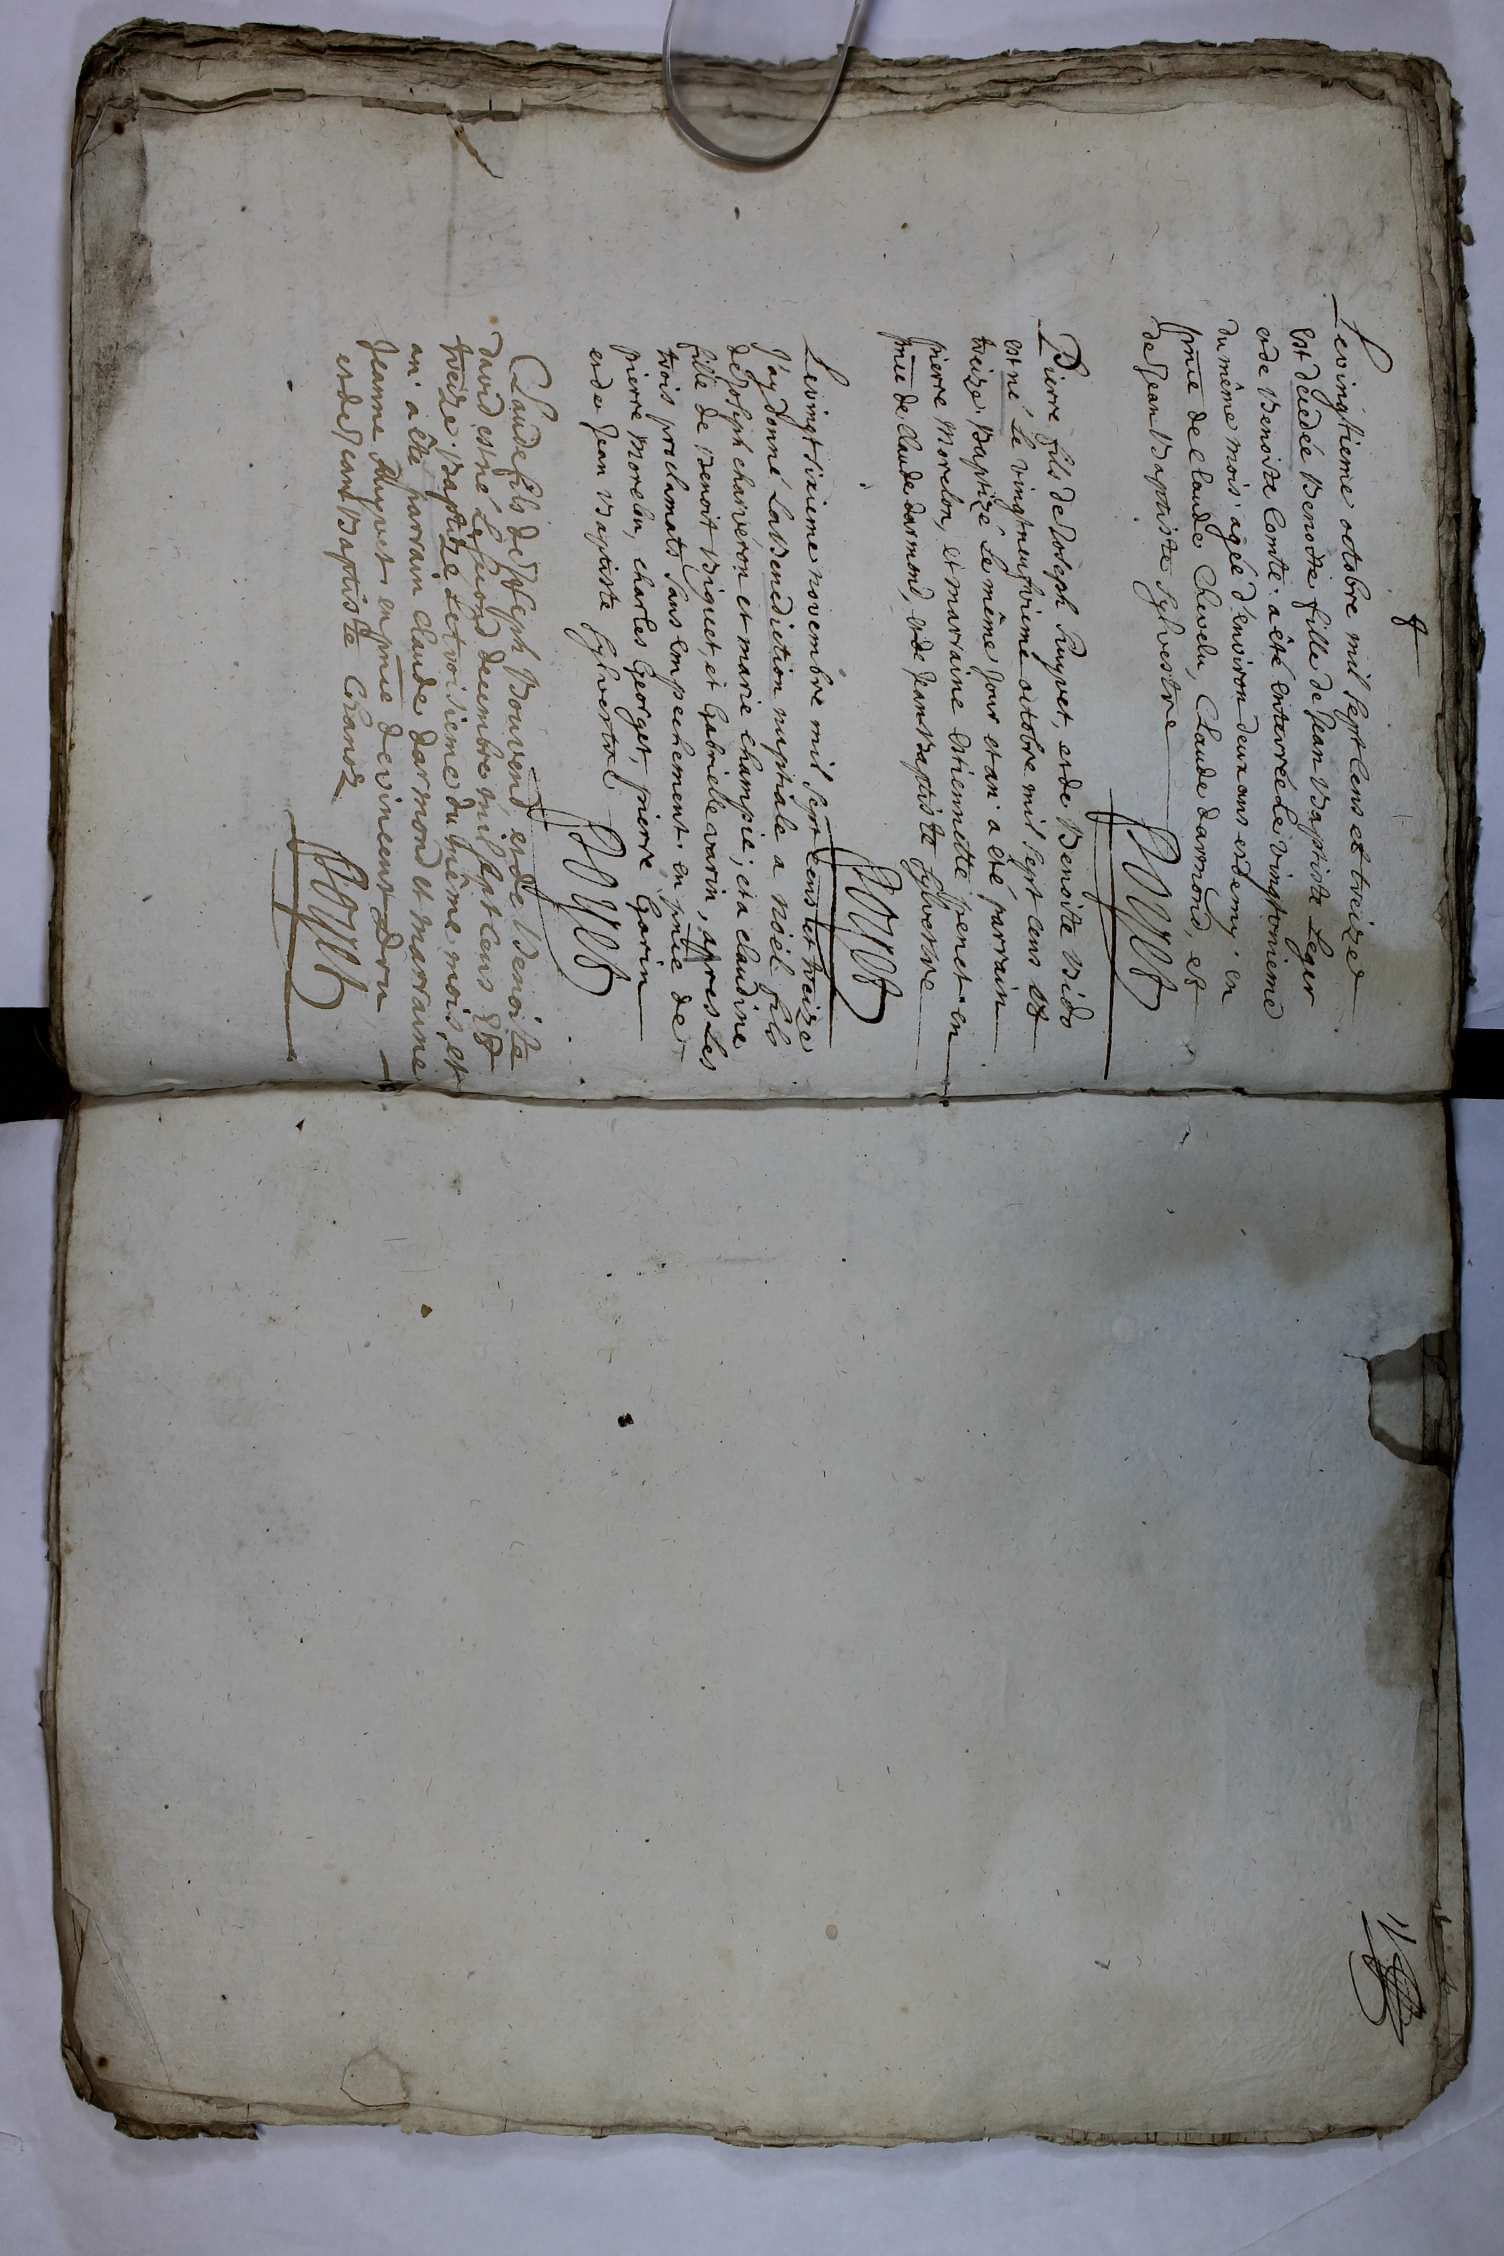 8
Le vingtieme octobre mil sept cens et treize
est décédée Benoite fille de Jean Baptiste Leger
et de Benoite Comte. a été enterrée Le vingt onieme
du même mois agée d'environ deux ans et demy. en
pnce de claude Chevelu, Claude darmond, et
de Jean Baptiste Sylvestre
Pierre fils de Joseph Puyvet, et de Benoite Bido
est né Le vingt neufvieme octobre mil sept cens et
treize. Baptizé Le même jour et an. a eté parrain
pierre Morelon, et marraine Estiennette penet. en
pnce de claude darmond, et de Jean Baptiste Sylvestre
Le vingt sixieme novembre mil sept cens et treize
J'ay donné La Benediction nuptiale a noël fils
de Joseph chaiveron et marie champié; et a claudine
fille de Benoit Biguet, et Gabrielle varin, apres Les
trois proclamats sans empechement. en pnce de
pierre Morelon, charles Georget, pierre Garin
et de Jean Baptiste Sylvestre
Claude fils de Joseph Bouvend, et de Benoite
david est né Le second decembre mil sept cens et
treize. Baptizé Le troisieme du même mois, et
an. a été parrain claude darmond et marraine
Jeanne Puyvet en pnce de vincent
et de Jean Baptiste Chanoz
11